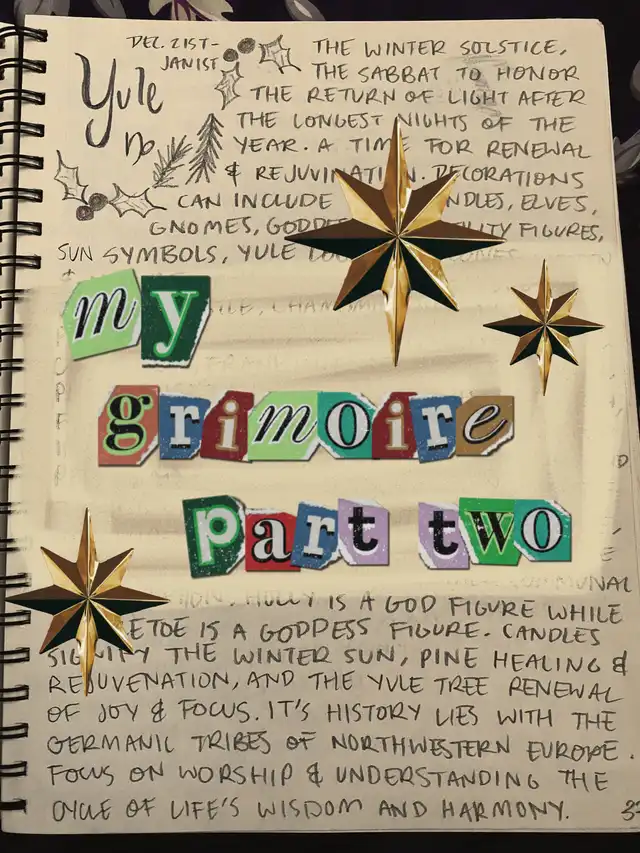 DEC. 21ST-
JAN 1ST
Yule
THE WINTER SOLSTICE,
THE SABBAT TO HONOR
THE RETURN OF LIGHT AFTER
THE LONGEST NIGHTS OF THE
YEAR. A TIME FOR RENEWAL
& REJUVINATION. DECORATIONS
CAN INCLUDE NDLES, ELVES,
GNOMES, GODDE ILITY FIGURES,
SUN SYMBOLS, YULE
my
grimoire
part two
COMMUNAL
HOLLY IS A GOD FIGURE WHILE
ETOE IS A GODDESS FIGURE. CANDLES
SIGNIFY THE WINTER SUN, PINE HEALING &
REJUVENATION, AND THE YULE TREE RENEWAL
OF JOY & FOCUS. IT'S HISTORY LIES WITH THE
GERMANIC TRIBES OF NORTHWESTERN EUROPE.
FOCUS ON WORSHIP & UNDERSTANDING THE
CYCLE OF LIFE'S WISDOM AND HARMONY.